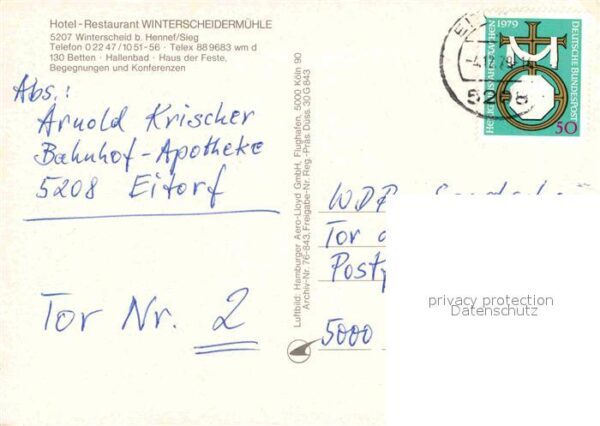 Hotel-Restaurant WINTERSCHEIDERMÜHLE
5207 Winterscheid b. Hennef/Sieg
Telefon 0 22 47 / 10 51-56 · Telex 88 9683 wm d
130 Betten · Hallenbad · Haus der Feste,
Begegnungen und Konferenzen
Abs.:
Arnold Krischer
Bahnhof-Apotheke
5208 Eitorf
Tor Nr. 2
Luftbild: Hamburger Aero-Lloyd GmbH, Flughafen, 5000 Köln 90
Archiv-Nr. 76-843, Freigabe-Nr. Reg.-Präs. Düss. 30 G 843
1979
DEUTSCHE BUNDESPOST
50
-4.12.79
WDR
Tor
5000
privacy protection
Datenschutz